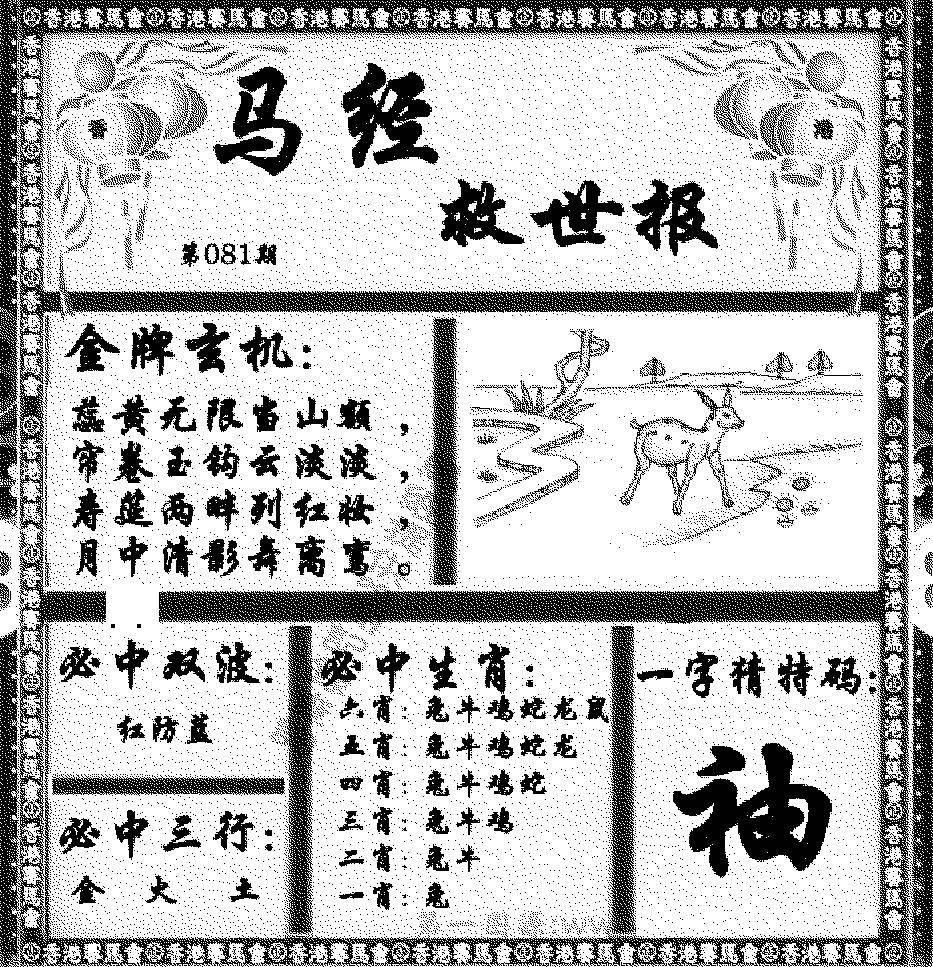 香港賽馬會香港賽馬會香港賽馬會香港賽馬會香港賽馬會香港賽馬會香港賽馬會
香
港
马经
救世报
第081期
金牌玄机:
蕊黄无限当山额,
帘卷玉钩云淡淡,
寿筵两畔列红妆,
月中清影舞离鸾。
必中双波:
红防蓝
必中三行:
金 火 土
必中生肖:
六肖: 兔牛鸡蛇龙鼠
五肖: 兔牛鸡蛇龙
四肖: 兔牛鸡蛇
三肖: 兔牛鸡
二肖: 兔牛
一肖: 兔
一字猜特码:
袖
香港賽馬會香港賽馬會香港賽馬會香港賽馬會香港賽馬會香港賽馬會香港賽馬會